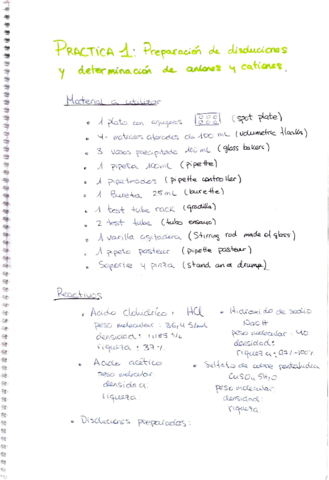 PRACTICA 1: Preparación de disoluciones
y determinación de aniones y cationes.
Material a utilizar
1 plato con agujeros (spot plate)
4 matraces aforados de 100 mL (volumetric flasks)
3 vasos precipitado 100 mL (glass bakers)
1 pipeta 100mL (pipette)
1 pipeteador (pipette controller)
1 Bureta 25mL (burette)
1 test tube rack (gradilla)
2 test tube (tubo ensayo)
1 varilla agitadora (Stirring rod made of glass)
1 pipeta pasteur (pipette pasteur)
Soporte y pinza (stand and
Reactivos
Acido Clohídrico: HCl
peso molecular: 36,4
densidad:
riqueza: 37%
Acido acético
peso molecular
densidad
riqueza
Disoluciones preparadas:
Hidroxido de sodio
NaOH
peso molecular: 40
densidad:
riqueza:
Sulfato de cobre pentahidratado
peso molecular
densidad:
riqueza: